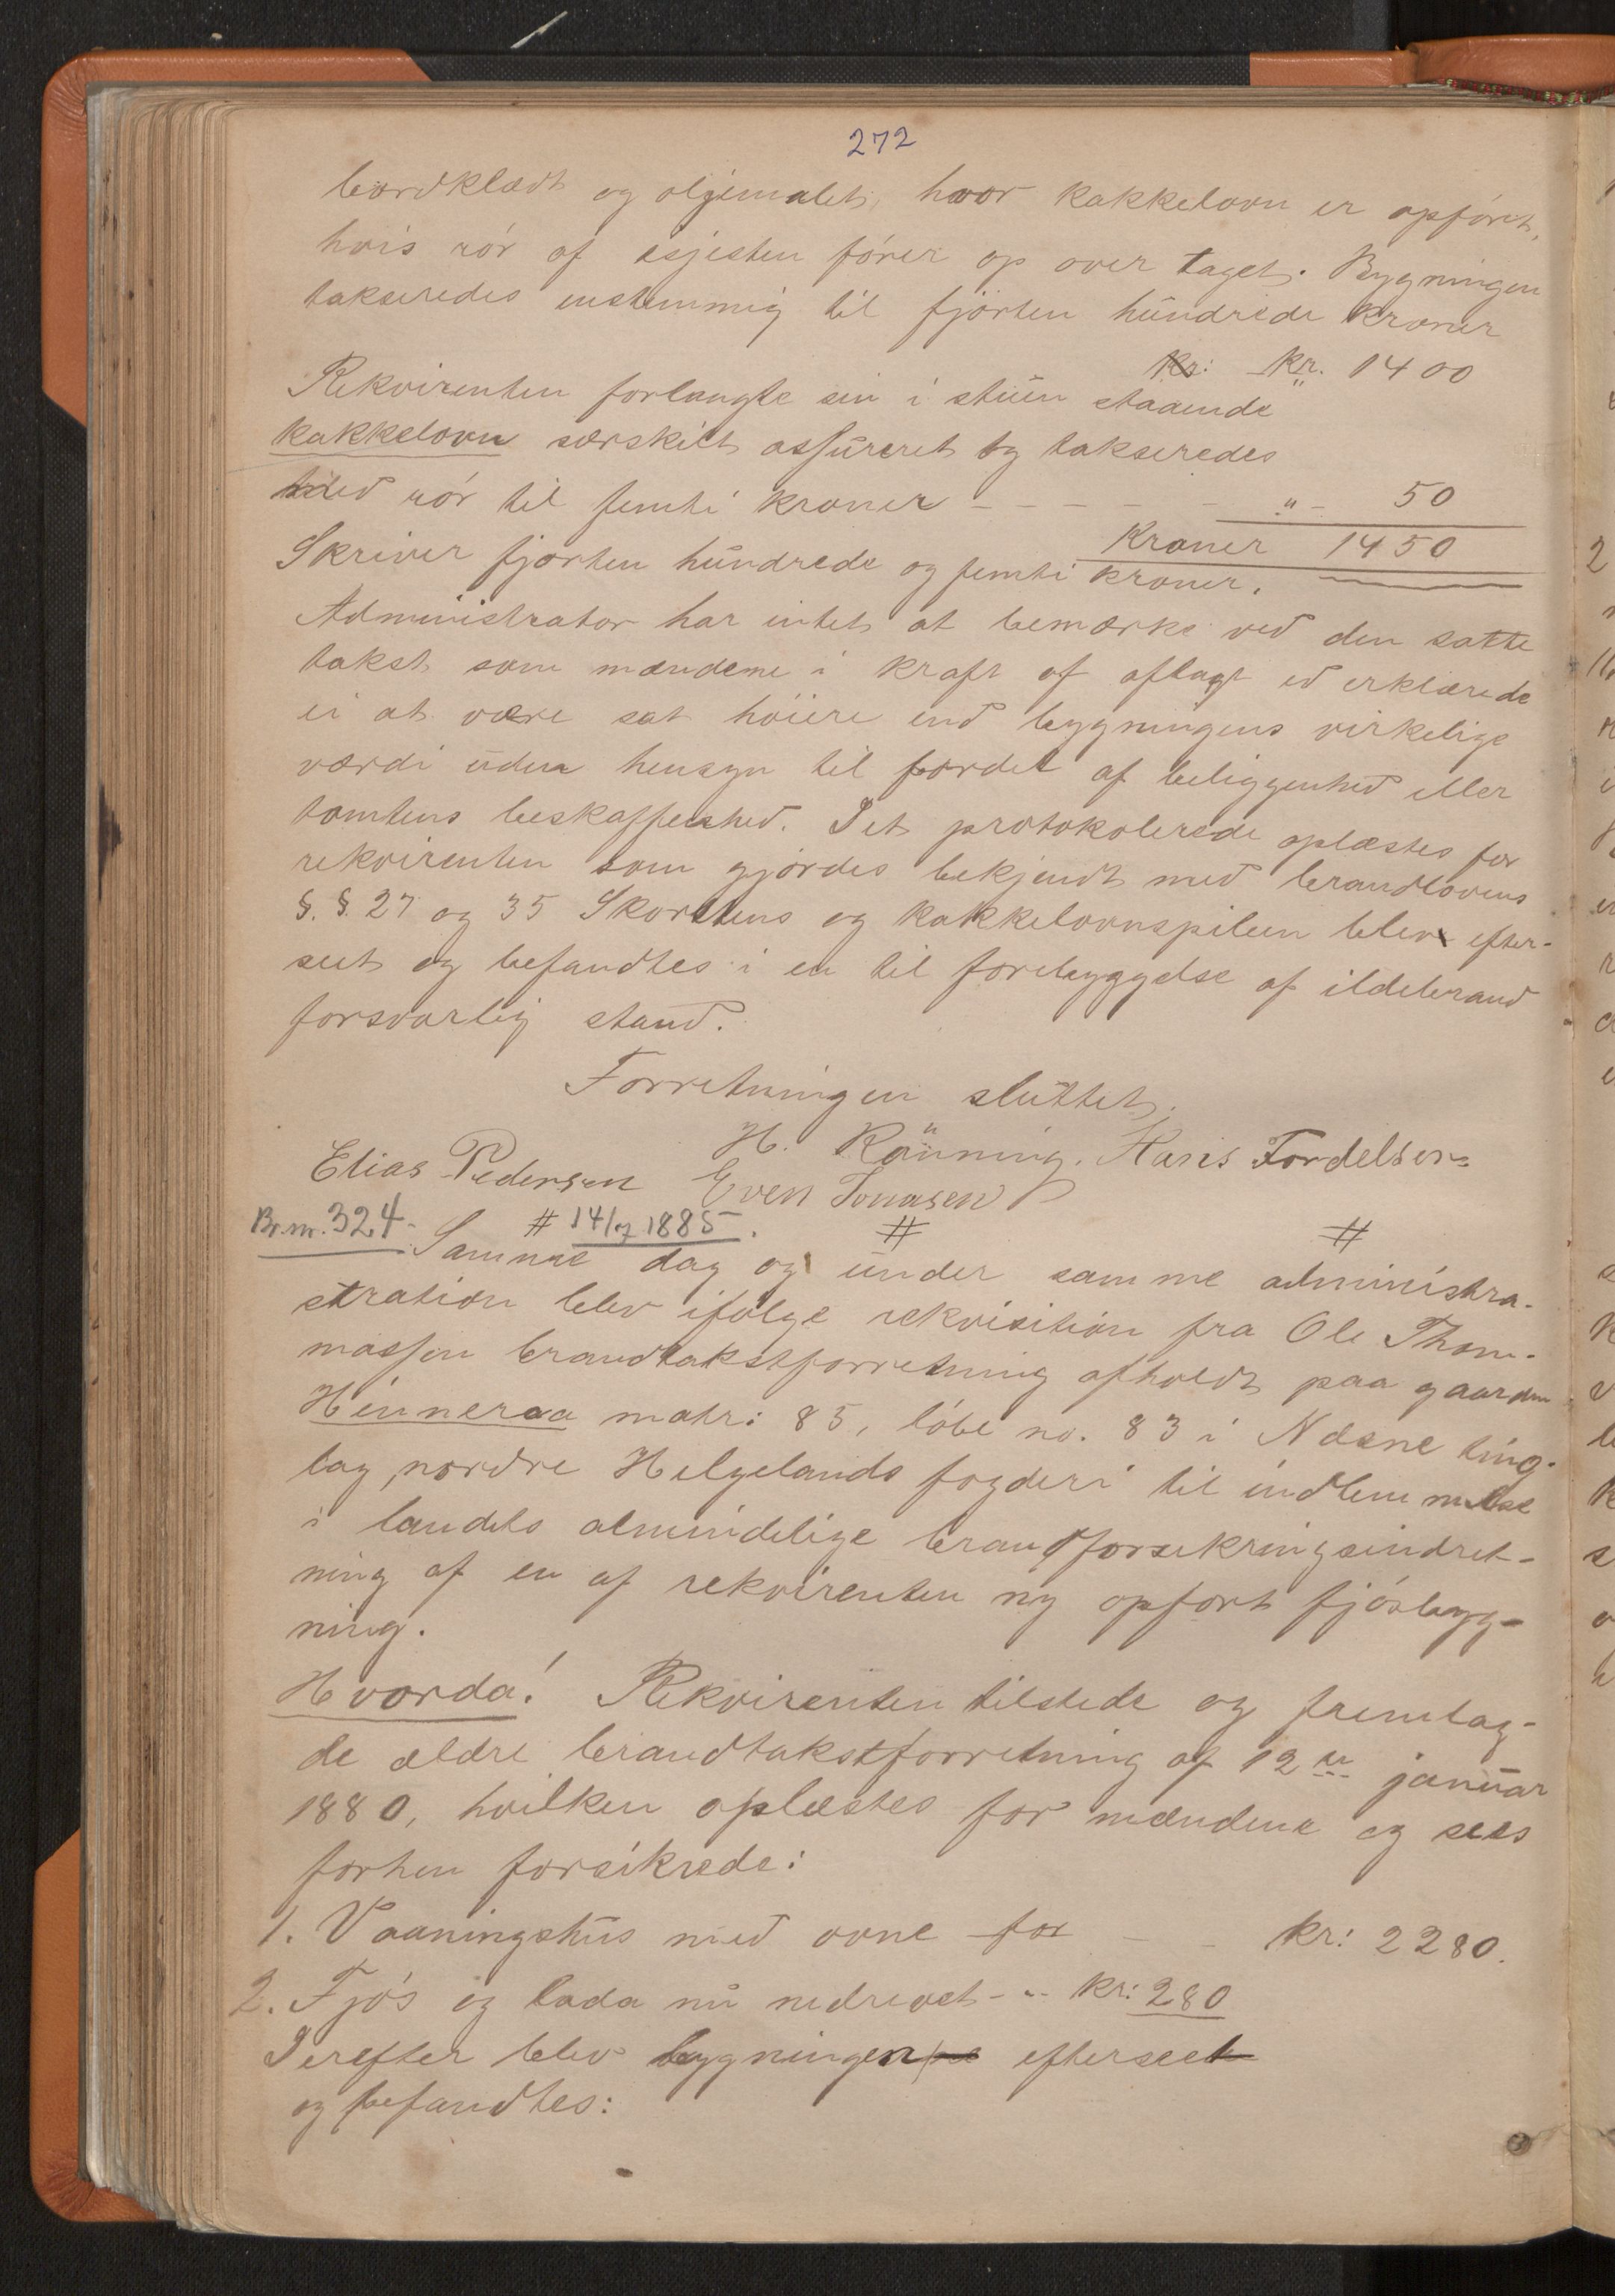 272
bordklædt og oljemalet, hvor kakkelovn er opført,
hvis rör af esjesten fører op over taget. Bygningen
takseredes enstemmig til fjorten hundrede kroner
kr: kr. 1400
Rekvirenten forlangte sin i stuen staaende
kakkelovn særskilt assureret og takseredes
med rör til femti kroner - - - - - " - 50
Kroner 1450
Skriver fjorten hundrede og femti kroner.
Administrator har intet at bemærke ved den satte
takst som mændene i kraft af aflagt ed erklærede
ei at være sat höiere end bygningens virkelige
værdi uden hensyn til fordel af beliggenhed eller
tomtens beskaffenhed. Det protokolerede oplæstes for
rekvirenten som gjordes bekjendt med brandlovens
§. §. 27 og 35 Skorstens og kakkelovnspiben blev efter-
seet og befandtes i en til forebyggelse af ildebrand
forsvarlig stand.
Forretningen sluttet.
H. Rönning. Hans Fordelsen
Elias Pedersen Even Jonasen
Br. nr. 324. # 14/7 1885. # #
Samme dag og under samme administra-
stration blev ifölge rekvisition fra Ole Thom-
massen brandtakstforretning afholdt paa gaarden
Hinneraa matr: 85, löbe no. 83 i Næsne ting-
lag, nordre Helgelands fogderi til indlemmelse
i landets almindelige brandforsikringsindret-
ning af en af rekvirenten ny opført fjösbygg-
ning.
Hvorda! Rekvirenten tilstede og fremlag-
de ældre brandtakstforretning af 12te januar
1880, hvilken oplæstes for mændene og sees
forhen forsikrede:
1. Vaaningshus med ovne for - - kr: 2280.
2. Fjös og lada nu nedrevet - " - kr: 280
Derefter blev bygningen efterseet
og befandtes: